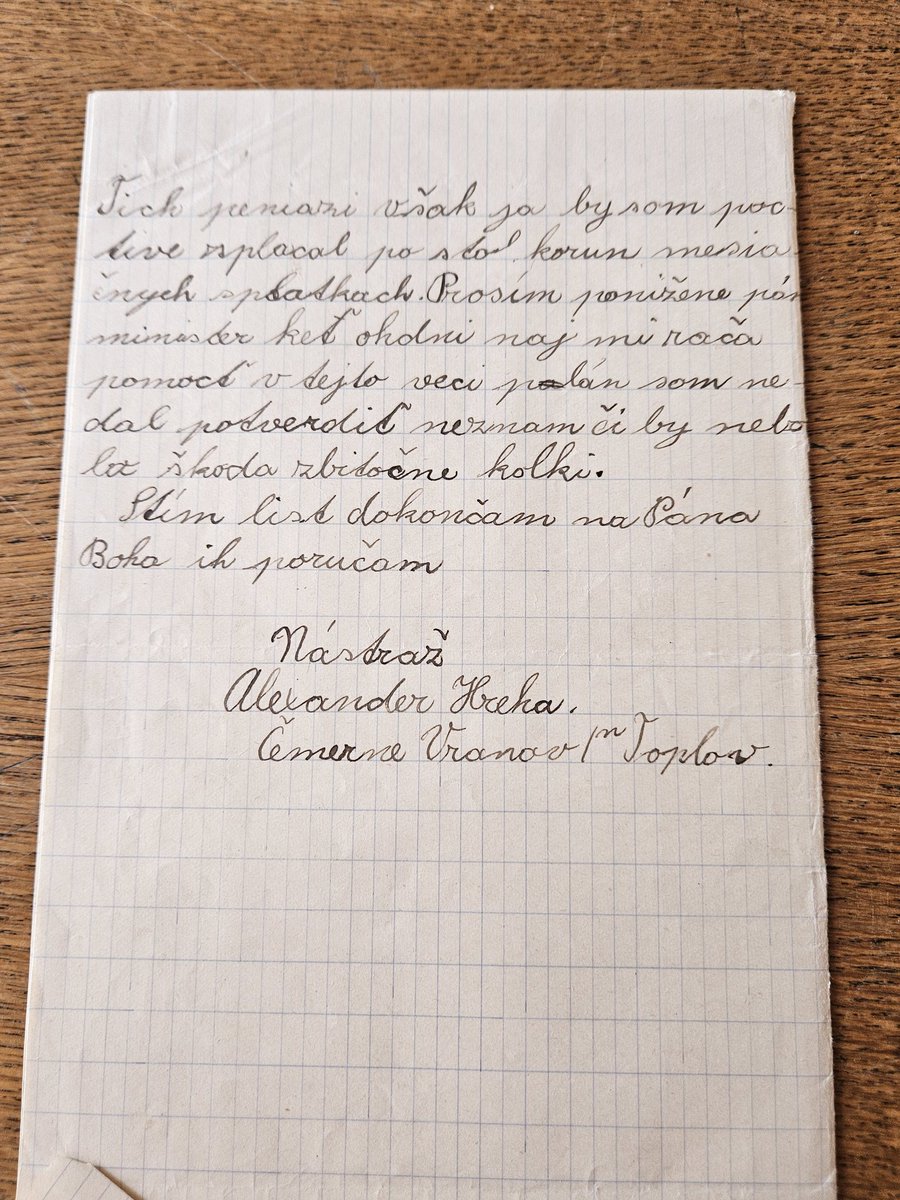 Tich peniazi však ja by som poc-
tive zplacal po sto korun mesia
čnych splatkach. Prosím ponižene pán
minister keť ohdni naj mi rača
pomocť v tejto veci plán som ne-
dal potverdiť neznam či by nebo
la škoda zbitočne kolki.
Stím list dokončam na Pána
Boha ih poručam
Nástraž
Alexander Hreha.
Čemerne Vranov /n Toplov.